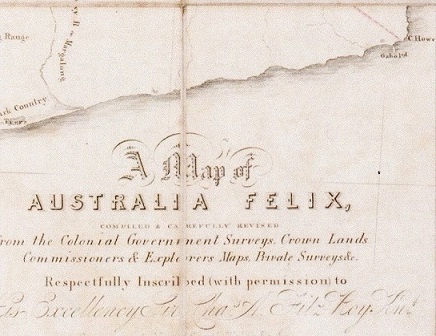 Range
C. Howe
Country
A Map of
AUSTRALIA FELIX,
COMPILED & CAREFULLY REVISED
from the Colonial Government Surveys, Crown Lands
Commissioners & Explorers Maps, Private Surveys &c.
Respectfully Inscribed (with permission) to
Excellency Sir Cha.s A. Fitz Roy Kn.t